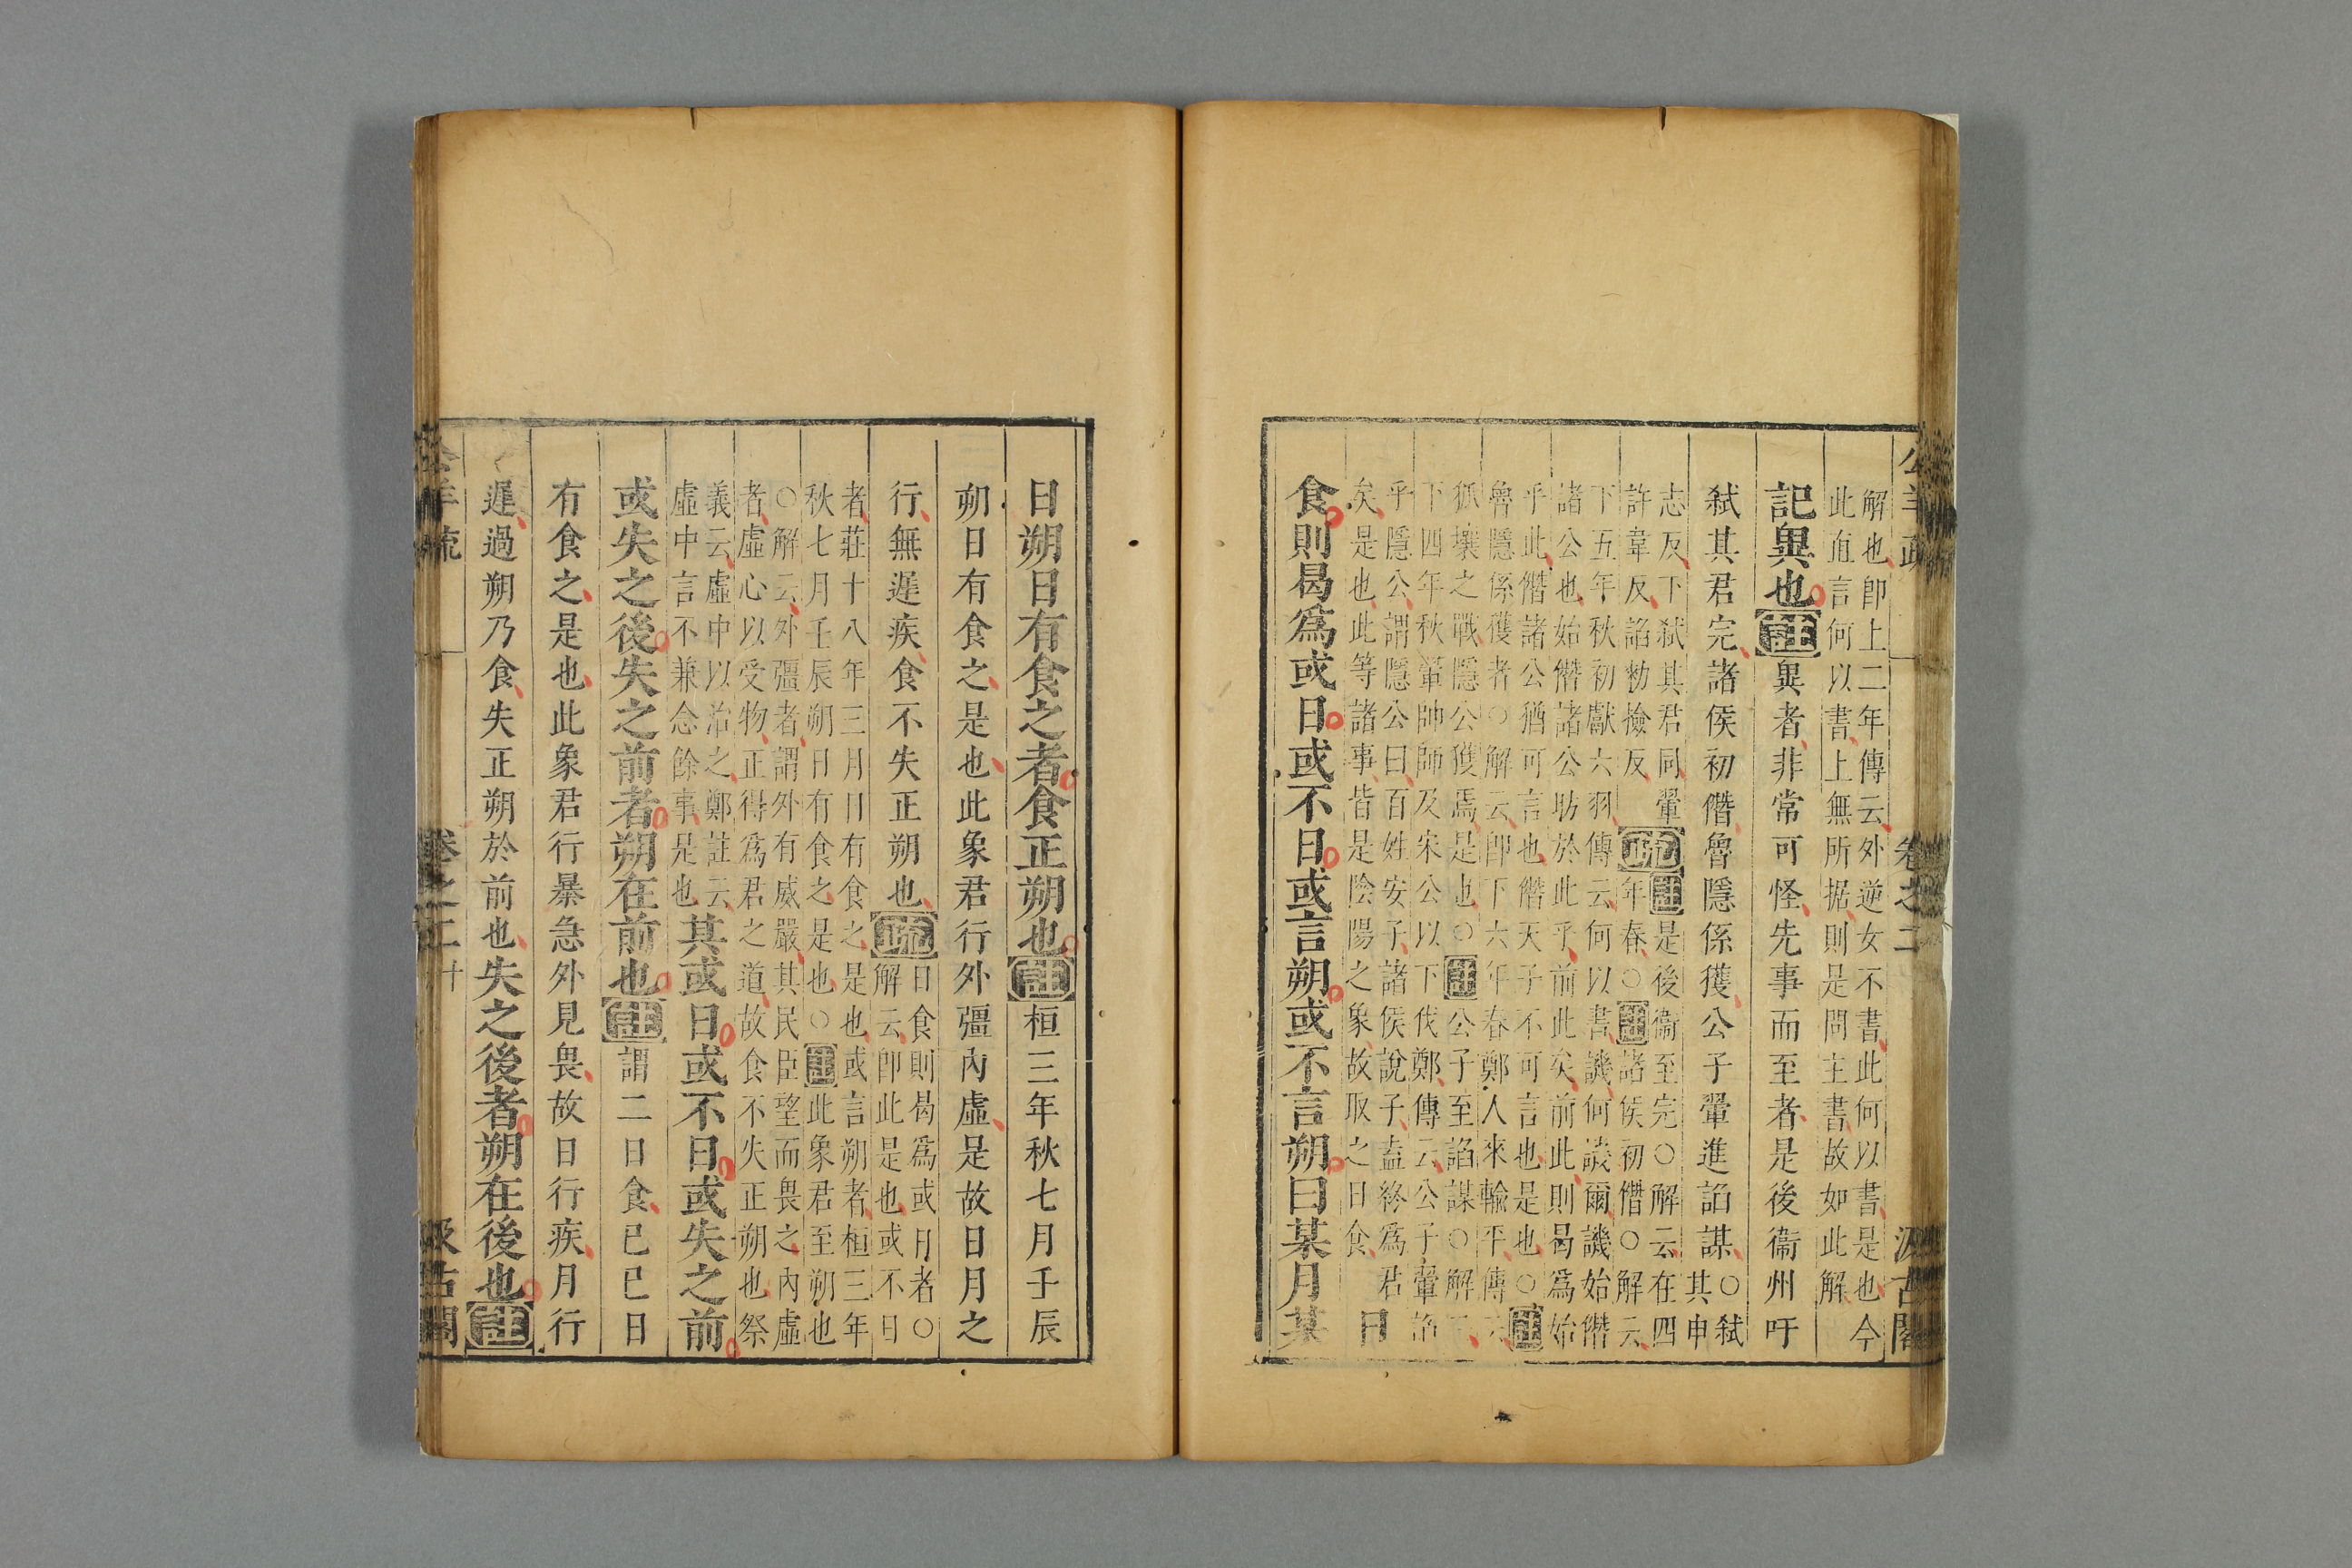 解也卽上二年傳云外逆女不書此何以書是也今
此直言何以書上無所据則是問主書故如此解
記異也註異者非常可怪先事而至者是後衞州吁
弑其君完諸侯初僭魯隱係獲公子翬進諂謀○弑其申
志反下弑其君同翬
許韋反諂勑撿反
疏註是後衞至完○解云在四
年春○註諸侯初僭○解云
下五年秋初獻六羽傳云何以書譏何譏爾譏始僭
諸公也始僭諸公昉於此乎前此矣前此則曷爲始
乎此僭諸公猶可言也僭天子不可言也是也○註
魯隱係獲者○解云卽下六年春鄭人來輸平傳云
狐壤之戰隱公獲焉是也○註公子至諂謀○解云
下四年秋翬帥師及宋公以下伐鄭傳云公子翬諂
乎隱公謂隱公曰百姓安子諸侯說子盍終爲君
矣是也此等諸事皆是陰陽之象故取之日食
日
食則曷爲或日或不日或言朔或不言朔曰某月某
日朔日有食之者食正朔也註桓三年秋七月壬辰
朔日有食之是也此象君行外彊內虛是故日月之
行無遲疾食不失正朔也疏日食則曷爲或日者○
解云卽此是也或不日
者莊十八年三月日有食之是也或言朔者桓三年
秋七月壬辰朔日有食之是也○註此象君至朔也
○解云外彊者謂外有威嚴其民臣望而畏之內虛
者虛心以受物正得爲君之道故食不失正朔也祭
義云虛中以治之鄭註云
虛中言不兼念餘事是也
其或日或不日或失之前
或失之後失之前者朔在前也註謂二日食已巳日
有食之是也此象君行暴急外見畏故日行疾月行
遲過朔乃食失正朔於前也失之後者朔在後也註
公羊疏
卷之二
十
汲古閣